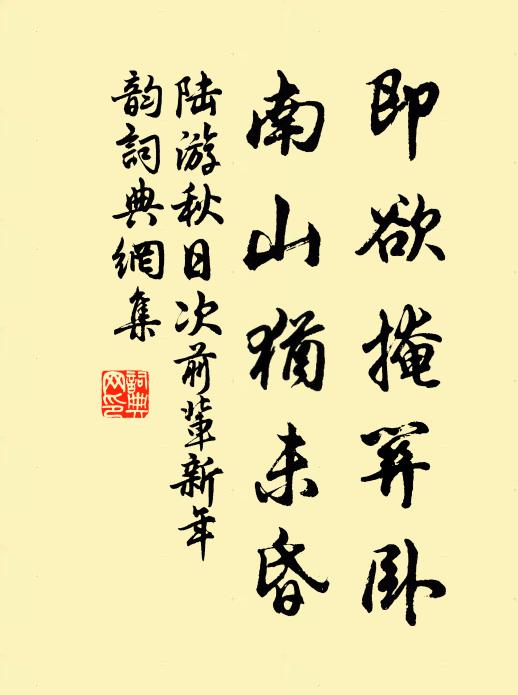 即欲掩関卧
南山猶未昏
陸游秋日次前輩新年
韵詞典網集
詞典
网印